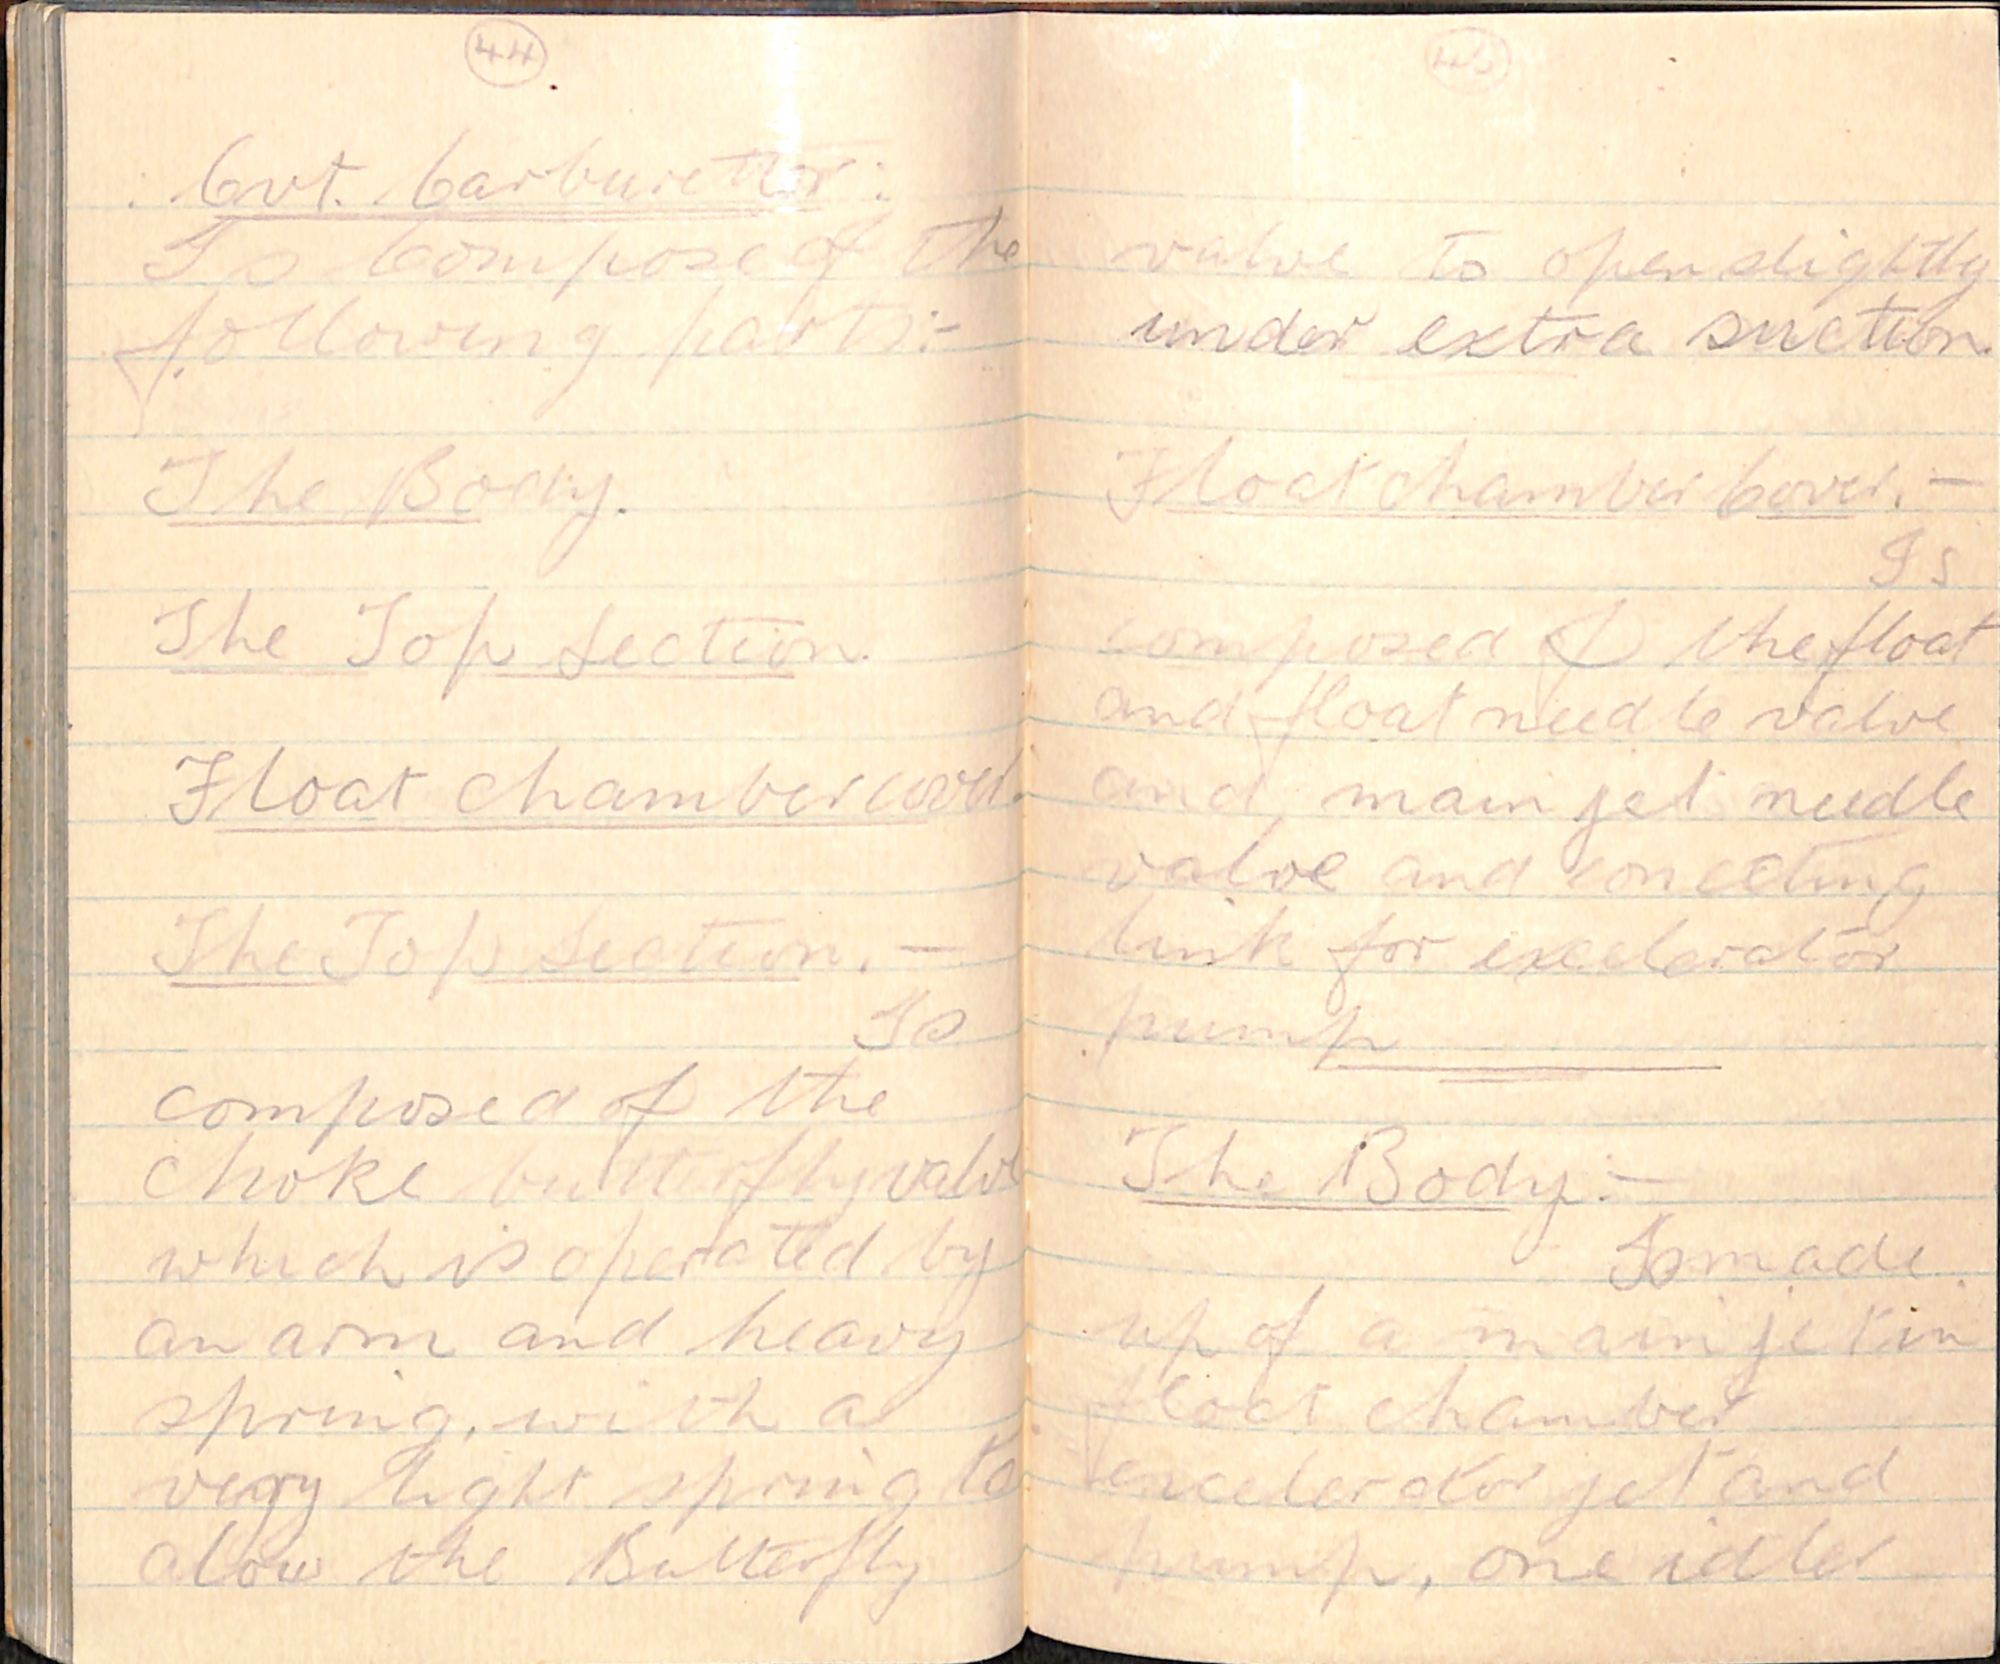 44
: Cvt. Carburettor :
Is Compose of the
following parts:-
The Body.
The Top Section.
Float chamber cover.
The Top Section. -
Is
composed of the
choke butterfly valve
which is operated by
an arm and heavy
spring, with a
very light spring to
alow the Butterfly
45
valve to open slightly
under extra suction.
Float chamber Cover. -
Is
composed of the float
and float needle valve
and main jet needle
valve and conecting
link for excelerator
pump
The Body:-
Is made
up of a main jet in
float chamber
excelerator jet and
pump, one idler